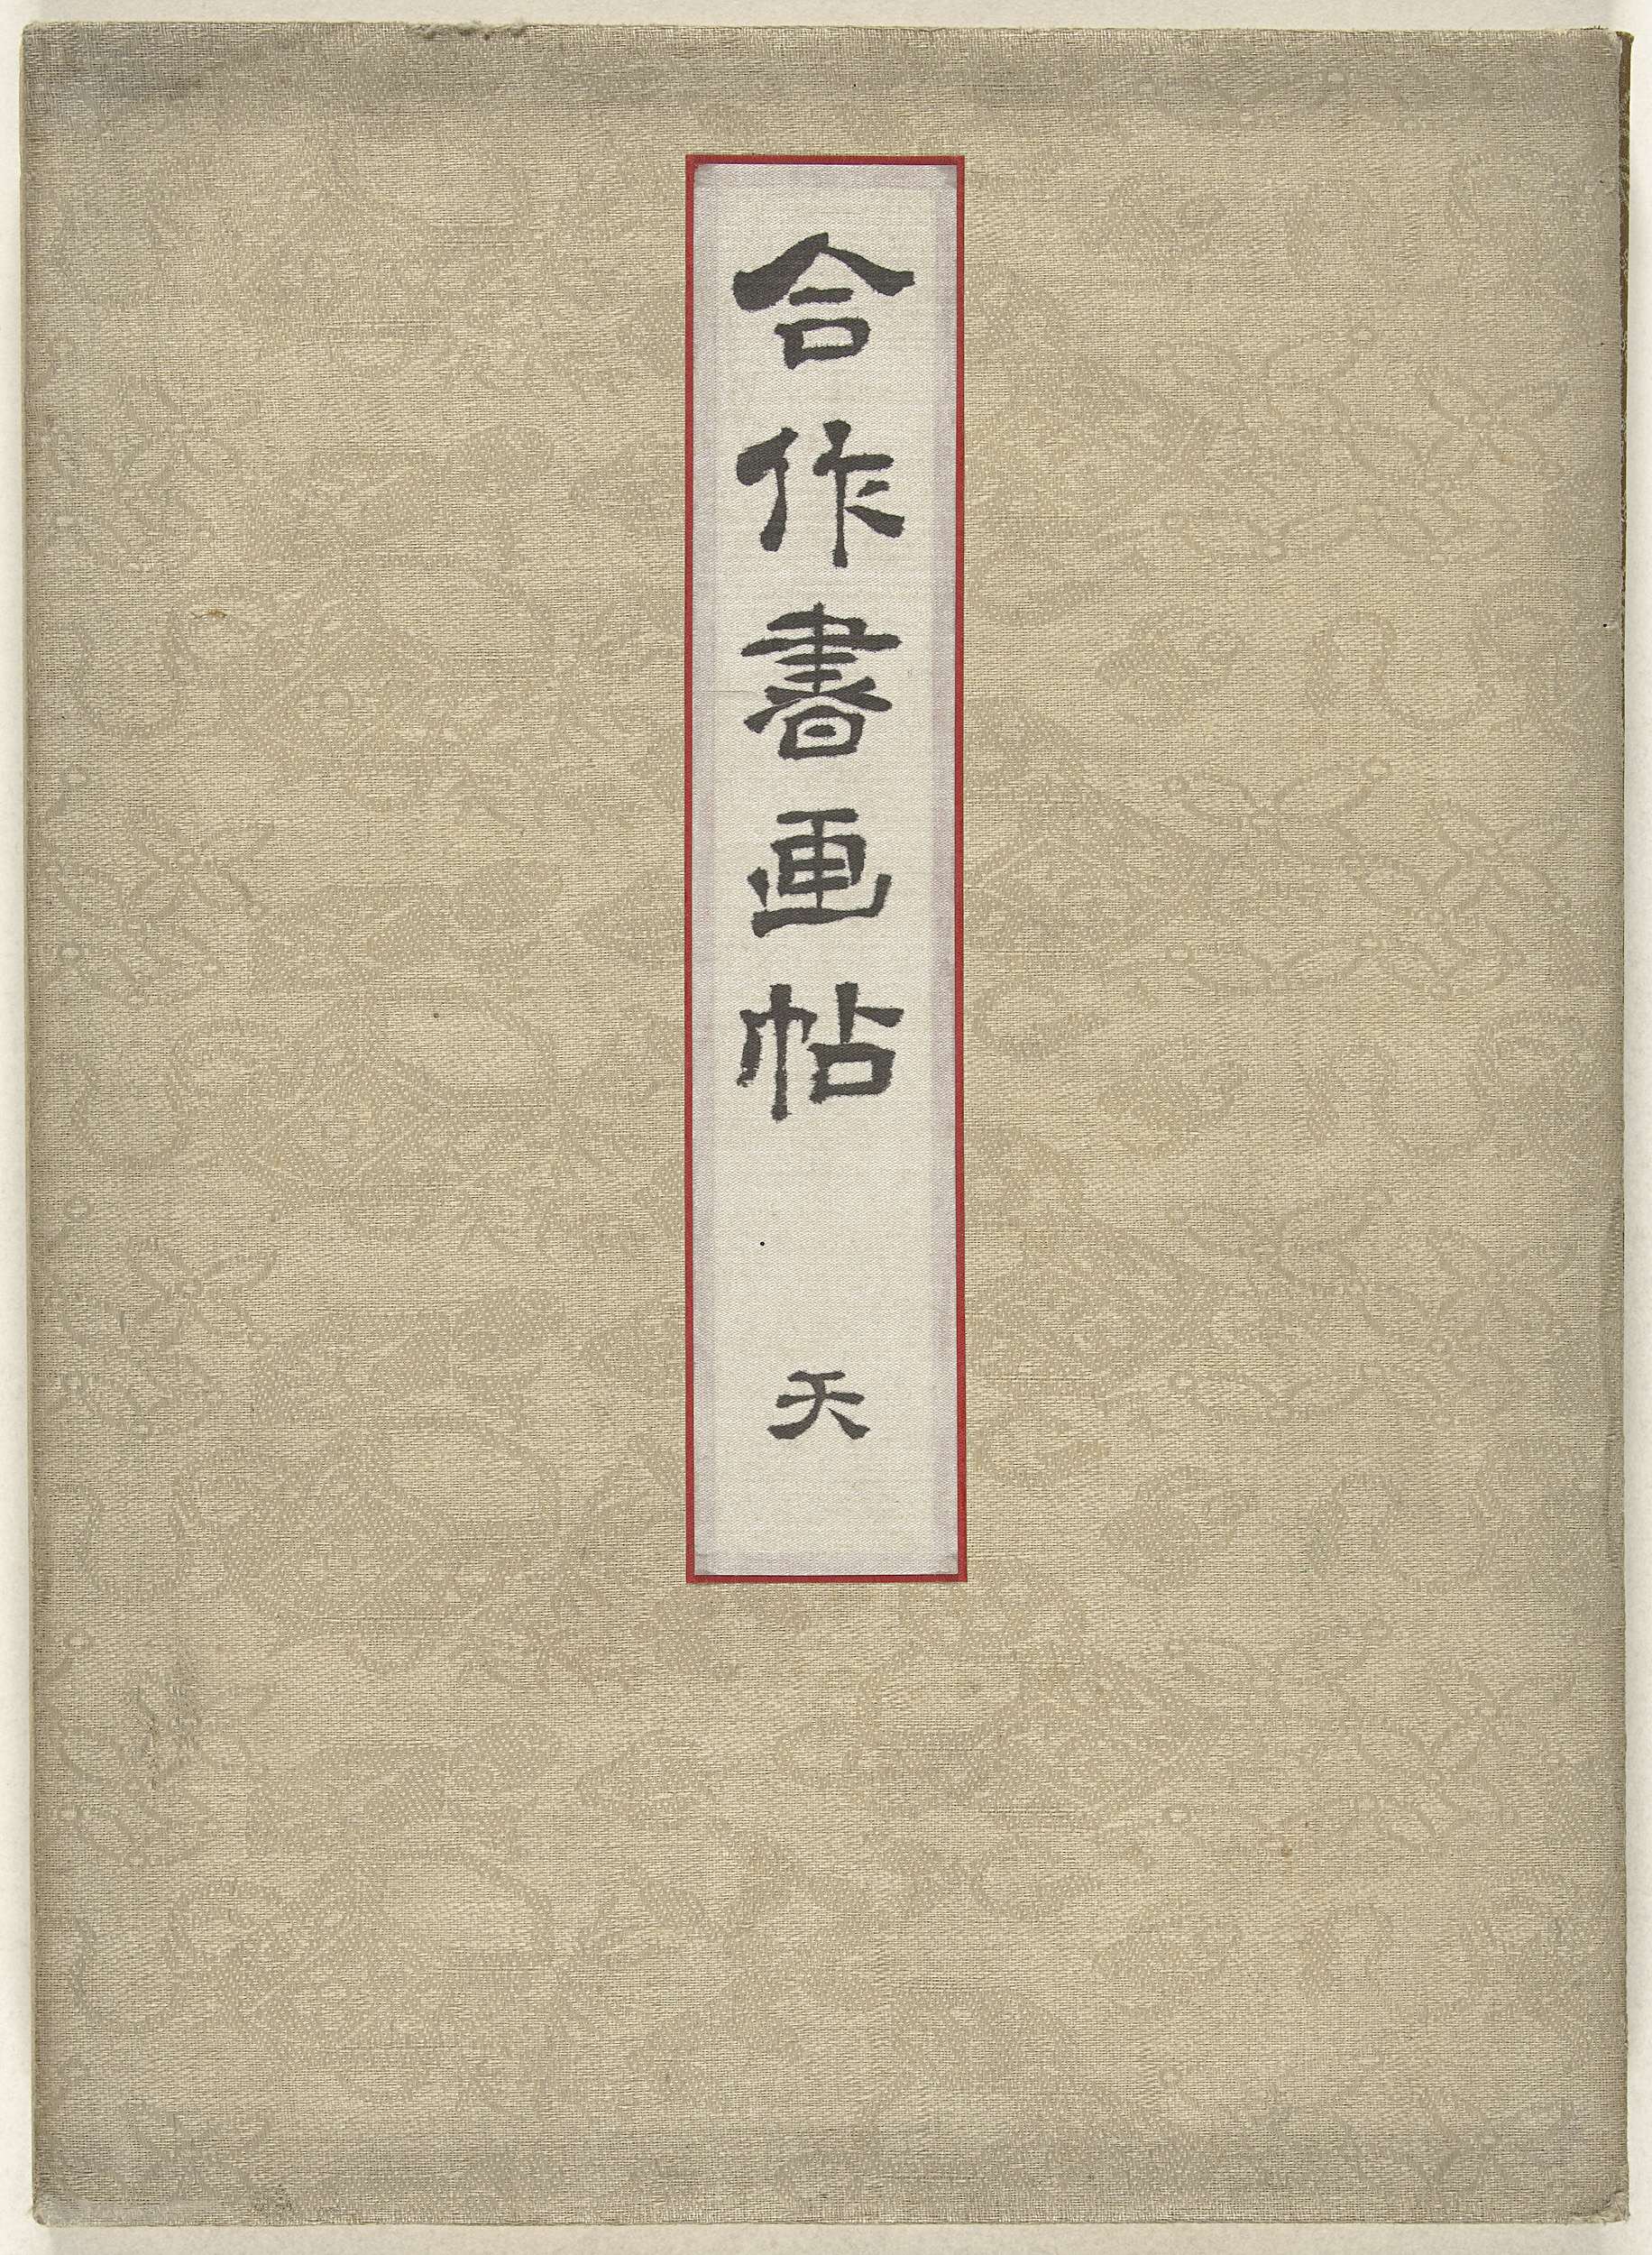 合作書画帖 天